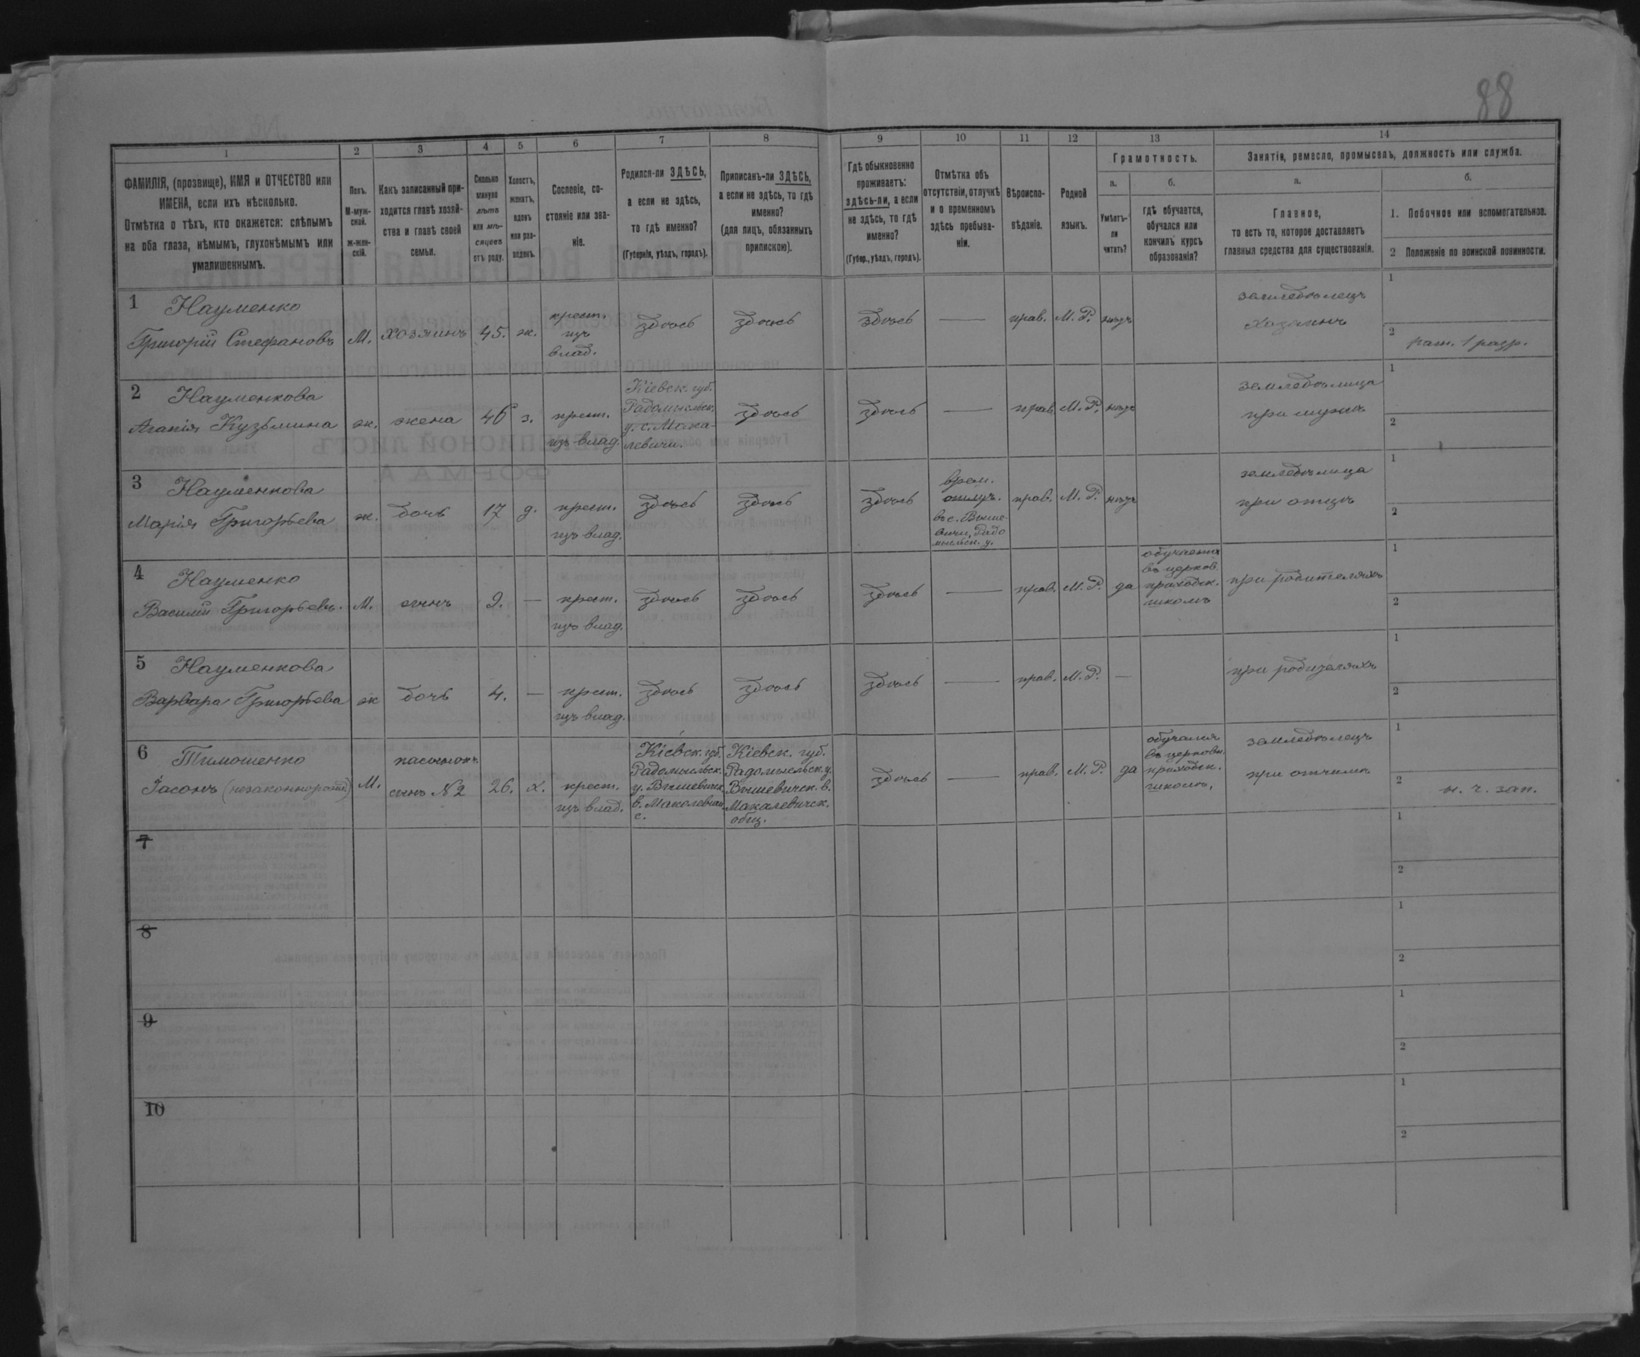 88
1
2
3
4
5
6
7
8
9
10
11
12
13
14
ФАМИЛІЯ, (прозвище), ИМЯ и ОТЧЕСТВО или
ИМЕНА, если ихъ нѣсколько.
Отмѣтка о тѣхъ, кто окажется: слѣпымъ
на оба глаза, нѣмымъ, глухонѣмымъ или
умалишеннымъ.
Полъ.
М-муж-
ской.
ж-жен-
скій.
Какъ записанный при-
ходится главѣ хозяй-
ства и главѣ своей
семьи.
Сколько
минуло
лѣтъ
или мѣ-
сяцевъ
отъ роду.
Холостъ,
женатъ,
вдовъ
или раз-
веденъ.
Сословіе, со-
стояніе или зва-
ніе.
Родился-ли ЗДѢСЬ,
а если не здѣсь,
то гдѣ именно?
(Губернія, уѣздъ, городъ).
Приписанъ-ли ЗДѢСЬ,
а если не здѣсь, то гдѣ
именно?
(для лицъ, обязанныхъ
припискою).
Гдѣ обыкновенно
проживаетъ:
здѣсь-ли, а если
не здѣсь, то гдѣ
именно?
(Губер., уѣздъ, городъ).
Отмѣтка объ
отсутствіи, отлучкѣ
и о временномъ
здѣсь пребыва-
ніи.
Вѣроиспо-
вѣданіе.
Родной
языкъ.
Грамотность.
а.
б.
Умѣетъ-
ли
читать?
гдѣ обучается,
обучался или
кончилъ курсъ
образованія?
Занятіе, ремесло, промыселъ, должность или служба.
а.
б.
Главное,
то есть то, которое доставляетъ
главныя средства для существованія.
1. Побочное или вспомогательное.
2 Положеніе по воинской повинности.
1 Науменко
Григорій Стефановъ
М.
хозяинъ
45.
ж.
крест.
изъ
влад.
здѣсь
здѣсь
здѣсь
—
прав.
М. Р.
нѣтъ
земледѣлецъ
хозяинъ
1
2
рат. 1 разр.
2 Науменкова
Агапія Кузьмина
ж.
жена
46
з.
крест.
изъ влад.
Кіевск. губ.
Радомысльск.
у. с. Мака-
левичи.
здѣсь
здѣсь
—
прав.
М. Р.
нѣтъ
земледѣлица
при мужѣ
1
2
3 Науменкова
Марія Григорьева
ж.
дочь
17
д.
крест.
изъ влад.
здѣсь
здѣсь
здѣсь
врем.
отлуч.
въ с. Выше-
вичи, Радо
мысльск. у.
прав.
М. Р.
нѣтъ
земледѣлица
при отцѣ
1
2
4 Науменко
Василій Григорьевъ.
М.
сынъ
9.
—
крест.
изъ влад.
здѣсь
здѣсь
здѣсь
—
прав.
М. Р.
да
обучается
въ церков.
приходск.
школѣ
при родителяхъ
1
2
5 Науменкова
Варвара Григорьева
ж
дочь
4.
—
крест.
изъ влад.
здѣсь
здѣсь
здѣсь
—
прав.
М. Р.
—
при родителяхъ
1
2
6 Тимошенко
Іасонъ (незаконнорожд)
М.
пасынокъ
сынъ №2
26.
х.
крест.
изъ влад.
Кіевск. губ.
Радомысльск.
у. Вышевичск.
в. Макалевичи
с.
Кіевск. губ.
Радомысльск. у.
Вышевичск. в.
Макалевичск.
общ.
здѣсь
—
прав.
М. Р.
да
обучался
въ церковн.
приходск.
школѣ.
земледѣлецъ
при отчимѣ
1
2
н. г. зап.
7
1
2
8
1
2
9
1
2
10
1
2